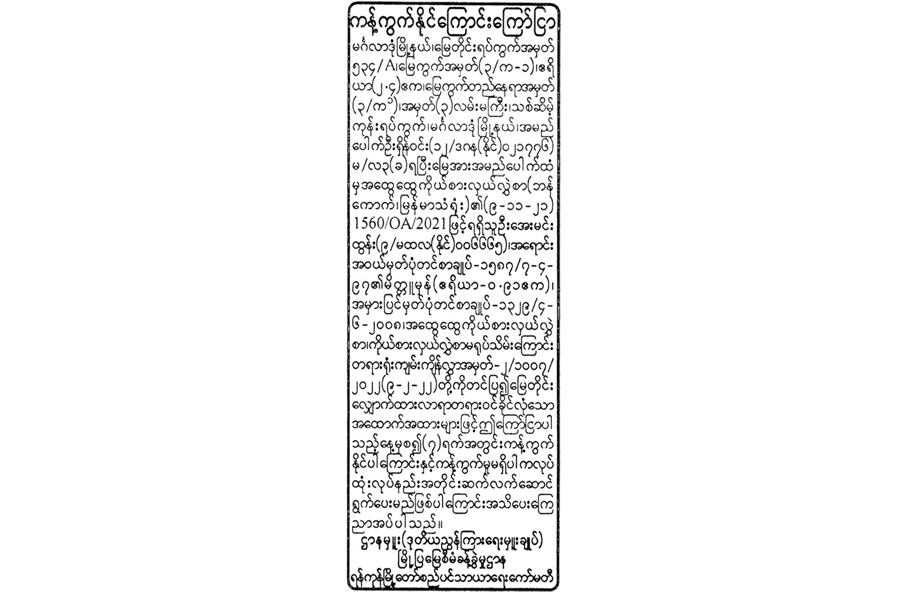 ကန့်ကွက်နိုင်ကြောင်းကြော်ငြာ
မင်္ဂလာဒုံမြို့နယ်၊မြေတိုင်းရပ်ကွက်အမှတ်
၅၃၄/A၊မြေကွက်အမှတ်(၃/က-၁)၊ဧရိ
ယာ(၂.၄)ဧက၊မြေကွက်တည်နေရာအမှတ်
(၃/က၁)၊အမှတ်(၃)လမ်းမကြီး၊သစ်ဆိမ့်
ကုန်းရပ်ကွက်၊မင်္ဂလာဒုံမြို့နယ်၊အမည်
ပေါက်ဦးရှိန်ဝင်း(၁၂/ဒဂန(နိုင်)၀၂၁၇၇၆)
မ/လ၃(ခ)ရပြီးမြေအားအမည်ပေါက်ထံ
မှအထွေထွေကိုယ်စားလှယ်လွှဲစာ(ဘန်
ကောက်၊မြန်မာသံရုံး)၏(၉-၁၁-၂၁)
1560/OA/2021ဖြင့်ရရှိသူဦးအေးမင်း
ထွန်း(၉/မထလ(နိုင်)၀၀၆၆၆၅)၊အရောင်း
အဝယ်မှတ်ပုံတင်စာချုပ်-၁၅၈၇/၇-၄-
၉၇၏မိတ္တူမှန်(ဧရိယာ-၀.၉၁ဧက)၊
အမှားပြင်မှတ်ပုံတင်စာချုပ်-၁၃၂၉/၄-
၆-၂၀၀၈၊အထွေထွေကိုယ်စားလှယ်လွှဲ
စာ၊ကိုယ်စားလှယ်လွှဲစာမရုပ်သိမ်းကြောင်း
တရားရုံးကျမ်းကျိန်လွှာအမှတ်-၂/၁၀၀၇/
၂၀၂၂(၉-၂-၂၂)တို့ကိုတင်ပြ၍မြေတိုင်း
လျှောက်ထားလာရာတရားဝင်ခိုင်လုံသော
အထောက်အထားများဖြင့်ဤကြော်ငြာပါ
သည့်နေ့မှစ၍(၇)ရက်အတွင်းကန့်ကွက်
နိုင်ပါကြောင်းနှင့်ကန့်ကွက်မှုမရှိပါကလုပ်
ထုံးလုပ်နည်းအတိုင်းဆက်လက်ဆောင်
ရွက်ပေးမည်ဖြစ်ပါကြောင်းအသိပေးကြေ
ညာအပ်ပါသည်။
ဌာနမှူး(ဒုတိယညွှန်ကြားရေးမှူးချုပ်)
မြို့ပြမြေစီမံခန့်ခွဲမှုဌာန
ရန်ကုန်မြို့တော်စည်ပင်သာယာရေးကော်မတီ